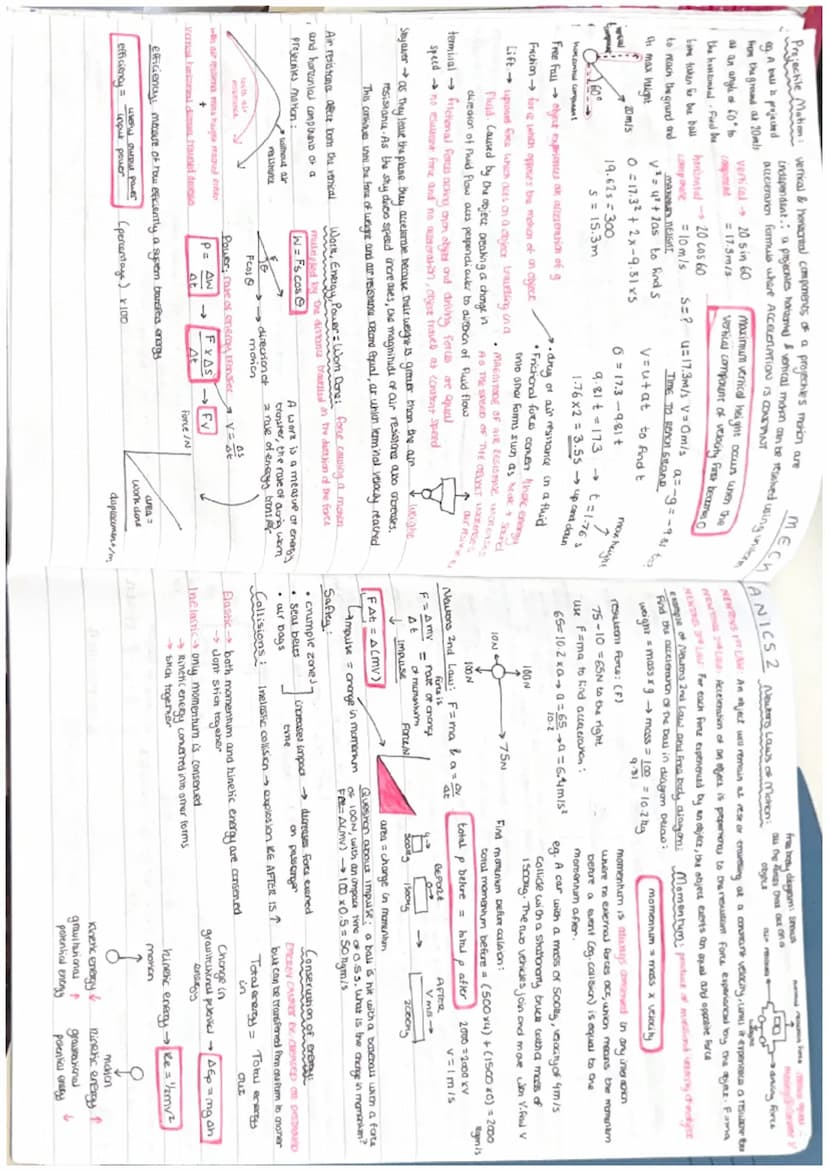 MECHANICS 2
Projectile Motion:
vertical & horizontal components of a projectile's motion are
independent ∴ a projectiles horizontal & vertical motion can be resolved using
acceleration formula where ACCELERATION IS CONSTANT
eg. A ball is projected
from the ground at 20m/s
at an angle of 60° to
the horizontal. Find the
time taken for the ball
to reach the ground and
its max height
vertical → 20 sin 60
component = 17.3m/s
horizontal → 20 cos 60
component = 10m/s
maximum vertical height occurs when the
vertical component of velocity first becomes 0
20m/s
60°
vertical component
horizontal component
MAXIMUM HEIGHT
s=? u=17.3m/s v=0m/s a=-g=-9.81
v² = u² + 2as to find s
0 = 17.3² + 2 x -9.81 x s
19.62s = 300
s = 15.3m
TIME TO REACH GROUND
v = u + at to find t
0 = 17.3 - 9.81t
9.81t = 17.3 → t = 1.76s
max height
1.76 x 2 = 3.5s → up and down
Free fall → object experiences an acceleration of g
Friction → force which opposes the motion of an object
• drag or air resistance in a fluid
• Frictional force convert kinetic energy
into other forms such as heat & sound
Lift → upward force which acts on a object travelling in a
fluid. Caused by the object creating a change in
direction of fluid flow acts perpendicular to direction of fluid flow
• MAGNITUDE OF AIR RESISTANCE INCREASES
AS THE SPEED OF THE OBJECT INCREASES
terminal → frictional forces acting on an object and driving force are equal
speed → no resultant force and no acceleration, object travels at constant speed
weight
Skydiver → as they leave the plane, they accelerate because their weight is greater than the air
resistance. As the sky diver's speed increases, the magnitude of air resistance also increases.
This continues until the force of weight and air resistance become equal, at which terminal velocity reached
Air resistance affect both the vertical
and horizontal components of a
projectiles motion:
without air
resistance
with air
resistance
Work, Energy, Power: Work Done: force causing a motion
multiplied by the distance travelled in the direction of the force
W = Fs cos θ
F
θ
Fcosθ
direction of
motion
A work is a measure of energy
transfer, the rate of doing work
= rate of energy transfer
Power: rate of energy transfer
P = ΔW/Δt → F x Δs/Δt → FV
v = Δs/Δt
Force/N
area =
work done
displacement/m
efficiency: measure of how efficiently a system transfers energy
efficiency = useful output power / input power
(percentage) x100
Newtons Laws of Motion:
free body diagram: shows
all the forces that act on a
object
driving force
NEWTONS 1ST LAW: An object will remain at rest or travelling at a constant velocity, until it experiences a resultant force
NEWTONS 2ND LAW: Acceleration of an object is proportional to the resultant force experienced by the object. F=ma
NEWTONS 3RD LAW: For each force experienced by an object, the object exerts an equal and opposite force
example of Newtons 2nd Law and free body diagram:
Find the acceleration of the ball in diagram below:
weight = mass x g → mass = 100/9.81 = 10.2kg
resultant force: (F)
75 - 10 = 65N to the right
use F=ma to find acceleration:
65 = 10.2 x a → a = 65/10.2 → a = 6.4m/s²
100N
10N
75N
100N
Momentum: product of mass and velocity of object
momentum = mass x velocity
momentum is always conserved in any interaction
where no external forces act, which means the momentum
before a event (eg. collision) is equal to the
momentum after.
eg. A car with a mass of 500kg, velocity of 4m/s
collide with a stationary truck with a mass of
1500kg. The two vehicles join and move with V. Find V
Find momentum before collision:
total momentum before = (500x4) + (1500x0) = 2000
kgm/s
total p before = total p after
2000 = 2000 x V
V = 1m/s
BEFORE
AFTER
4→
0→
Vm/s →
500kg
1500kg
2000kg
Newtons 2nd Law: F = ma & a = Δv/Δt
F = Δmv/Δt = rate of change
of momentum
Impulse
FΔt = Δ(mv)
Impulse = change in momentum
Force/N
area = change in momentum
Question about impulse: a ball is hit with a baseball with a force
of 100N, with an impact time of 0.5s. What is the change in momentum?
FΔt = Δ(mv) → 100 x 0.5 = 50kgm/s
Safety:
• crumple zones
• seat belts
• air bags
increases impact
time
→ decreases force exerted
on passenger
Collisions:
Inelastic collision → explosion, KE AFTER IS ↑
Elastic → both momentum and kinetic energy are conserved
→ dont stick together
Inelastic → only momentum is conserved
→ Kinetic energy converted into other forms
→ stick together
Conservation of energy:
ENERGY CANNOT BE CREATED OR DESTROYED
but can be transferred from one form to another
Total energy in = Total energy out
Change in
gravitational potential → ΔEp = mgΔh
energy
Kinetic energy → KE = ½mv²
motion
motion
kinetic energy ↓
gravitational ↑
potential energy
kinetic energy ↑
gravitational ↓
potential energy